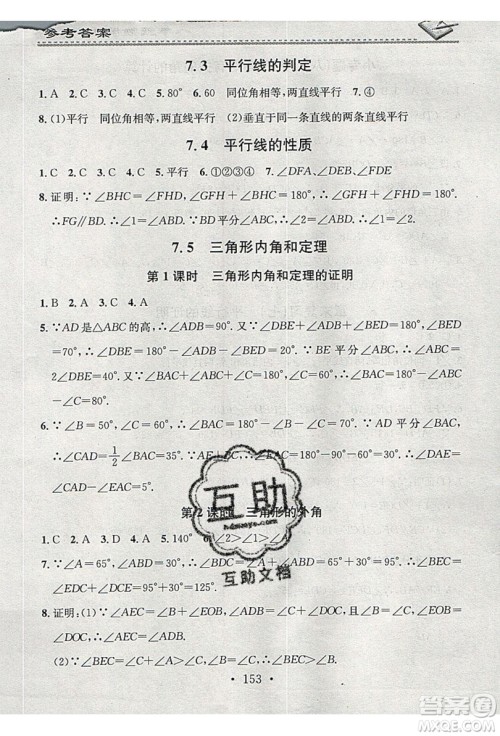 参考答案
7.3 平行线的判定
1. A 2. C 3. C 4. C 5. 80° 6. 60 同位角相等,两直线平行 7. ④
8. (1)平行 同位角相等,两直线平行 (2)垂直于同一条直线的两条直线平行
7.4 平行线的性质
1. C 2. C 3. A 4. C 5. 平行 6. ①②③④ 7. ∠DFA、∠DEB、∠FDE
8. 证明:∵∠BHC=∠FHD,∠GFH+∠BHC=180°,∴∠GFH+∠FHD=180°.
∴FG∥BD. ∴∠1=∠ABD. ∵BD 平分∠ABC,∴∠2=∠ABD. ∴∠1=∠2.
7.5 三角形内角和定理
第 1 课时 三角形内角和定理的证明
1. B 2. A 3. A 4. A
5. ∵AD 是△ABC 的高,∴∠ADB=90°. 又∵∠DBE+∠ADB+∠BED=180°,∠BED
=70°,∴∠DBE=180°-∠ADB-∠BED=20°. ∵BE 平分∠ABC,∴∠ABC=
2∠DBE=40°. ∵∠BAC+∠ABC+∠C=180°,∠C=60°,∴∠BAC=180°-∠ABC-
∠C=80°.
6. ∵∠B=50°,∠C=60°,∴∠BAC=180°-50°-60°=70°. 又∵AD 平分∠BAC,
∴∠CAD=1/2∠BAC=35°. ∵AE
∠CAE=5°.
第 2 课时 三角形的外角
1. C 2. A 3. D 4. A 5. 140° 6. ∠2>∠1>∠
7. ∵∠A=65°,∠ABD=30°,∴∠BDC=∠A+∠ABD=95°. ∵∠
∠BEC=∠EDC+∠DCE=95°+35°=130°.
8. 证明:(1)∵∠AEC=∠A+∠ABE,∠AEC
∠A+∠ABE.
(2)∵∠BEC=∠AEC+∠AEB,∴∠BEC>∠AEC.
· 153 ·
互助
hdzuoye.com
互助文档
答案圈
MXQE.COM